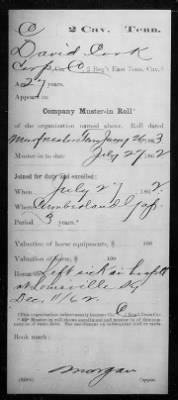 C 2 Cav. Tenn.
David Cook
Corp, Co. C, 2 Reg't East Tenn. Cav.*
Age 27 years.
Appears on
Company Muster-in Roll*
of the organization named above. Roll dated
Murfreesboro Tenn Jany 26, 1863
Muster-in to date July 27, 1862
Joined for duty and enrolled:
When July 27, 1862.
Where Cumberland Gap.
Period 3 years.*
Valuation of horse equipments, $ 100
Valuation of horse, $ 100
Remarks: Left sick in hospt
at Louisville Ky
Dec. 11/62.
Book mark:
Morgan
Copyist.